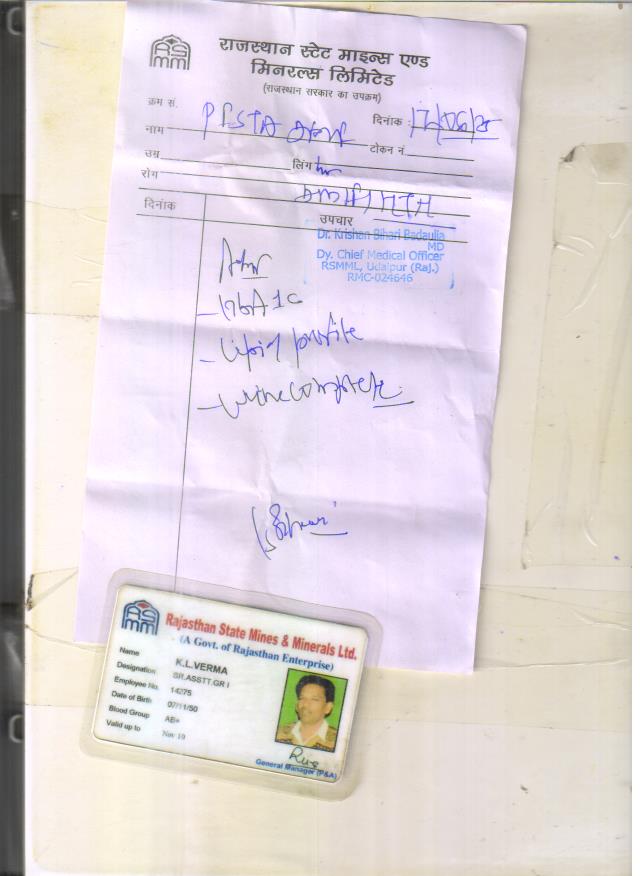 RSMM
राजस्थान स्टेट माइन्स एण्ड
मिनरल्स लिमिटेड
(राजस्थान सरकार का उपक्रम)
क्रम सं. दिनांक :
नाम टोकन नं.
उम्र लिंग
रोग
दिनांक उपचार
Dr. Krishan Bihari Badaulia
MD
Dy. Chief Medical Officer
RSMML, Udaipur (Raj.)
RMC-024646
- HbA1c
- Lipid profile
- Urine complete
RSMM
Rajasthan State Mines & Minerals Ltd.
(A Govt. of Rajasthan Enterprise)
Name K.L.VERMA
Designation SR.ASSTT.GR I
Employee No. 14275
Date of Birth 07/11/50
Blood Group AB+
Valid up to Nov 10
General Manager (P&A)